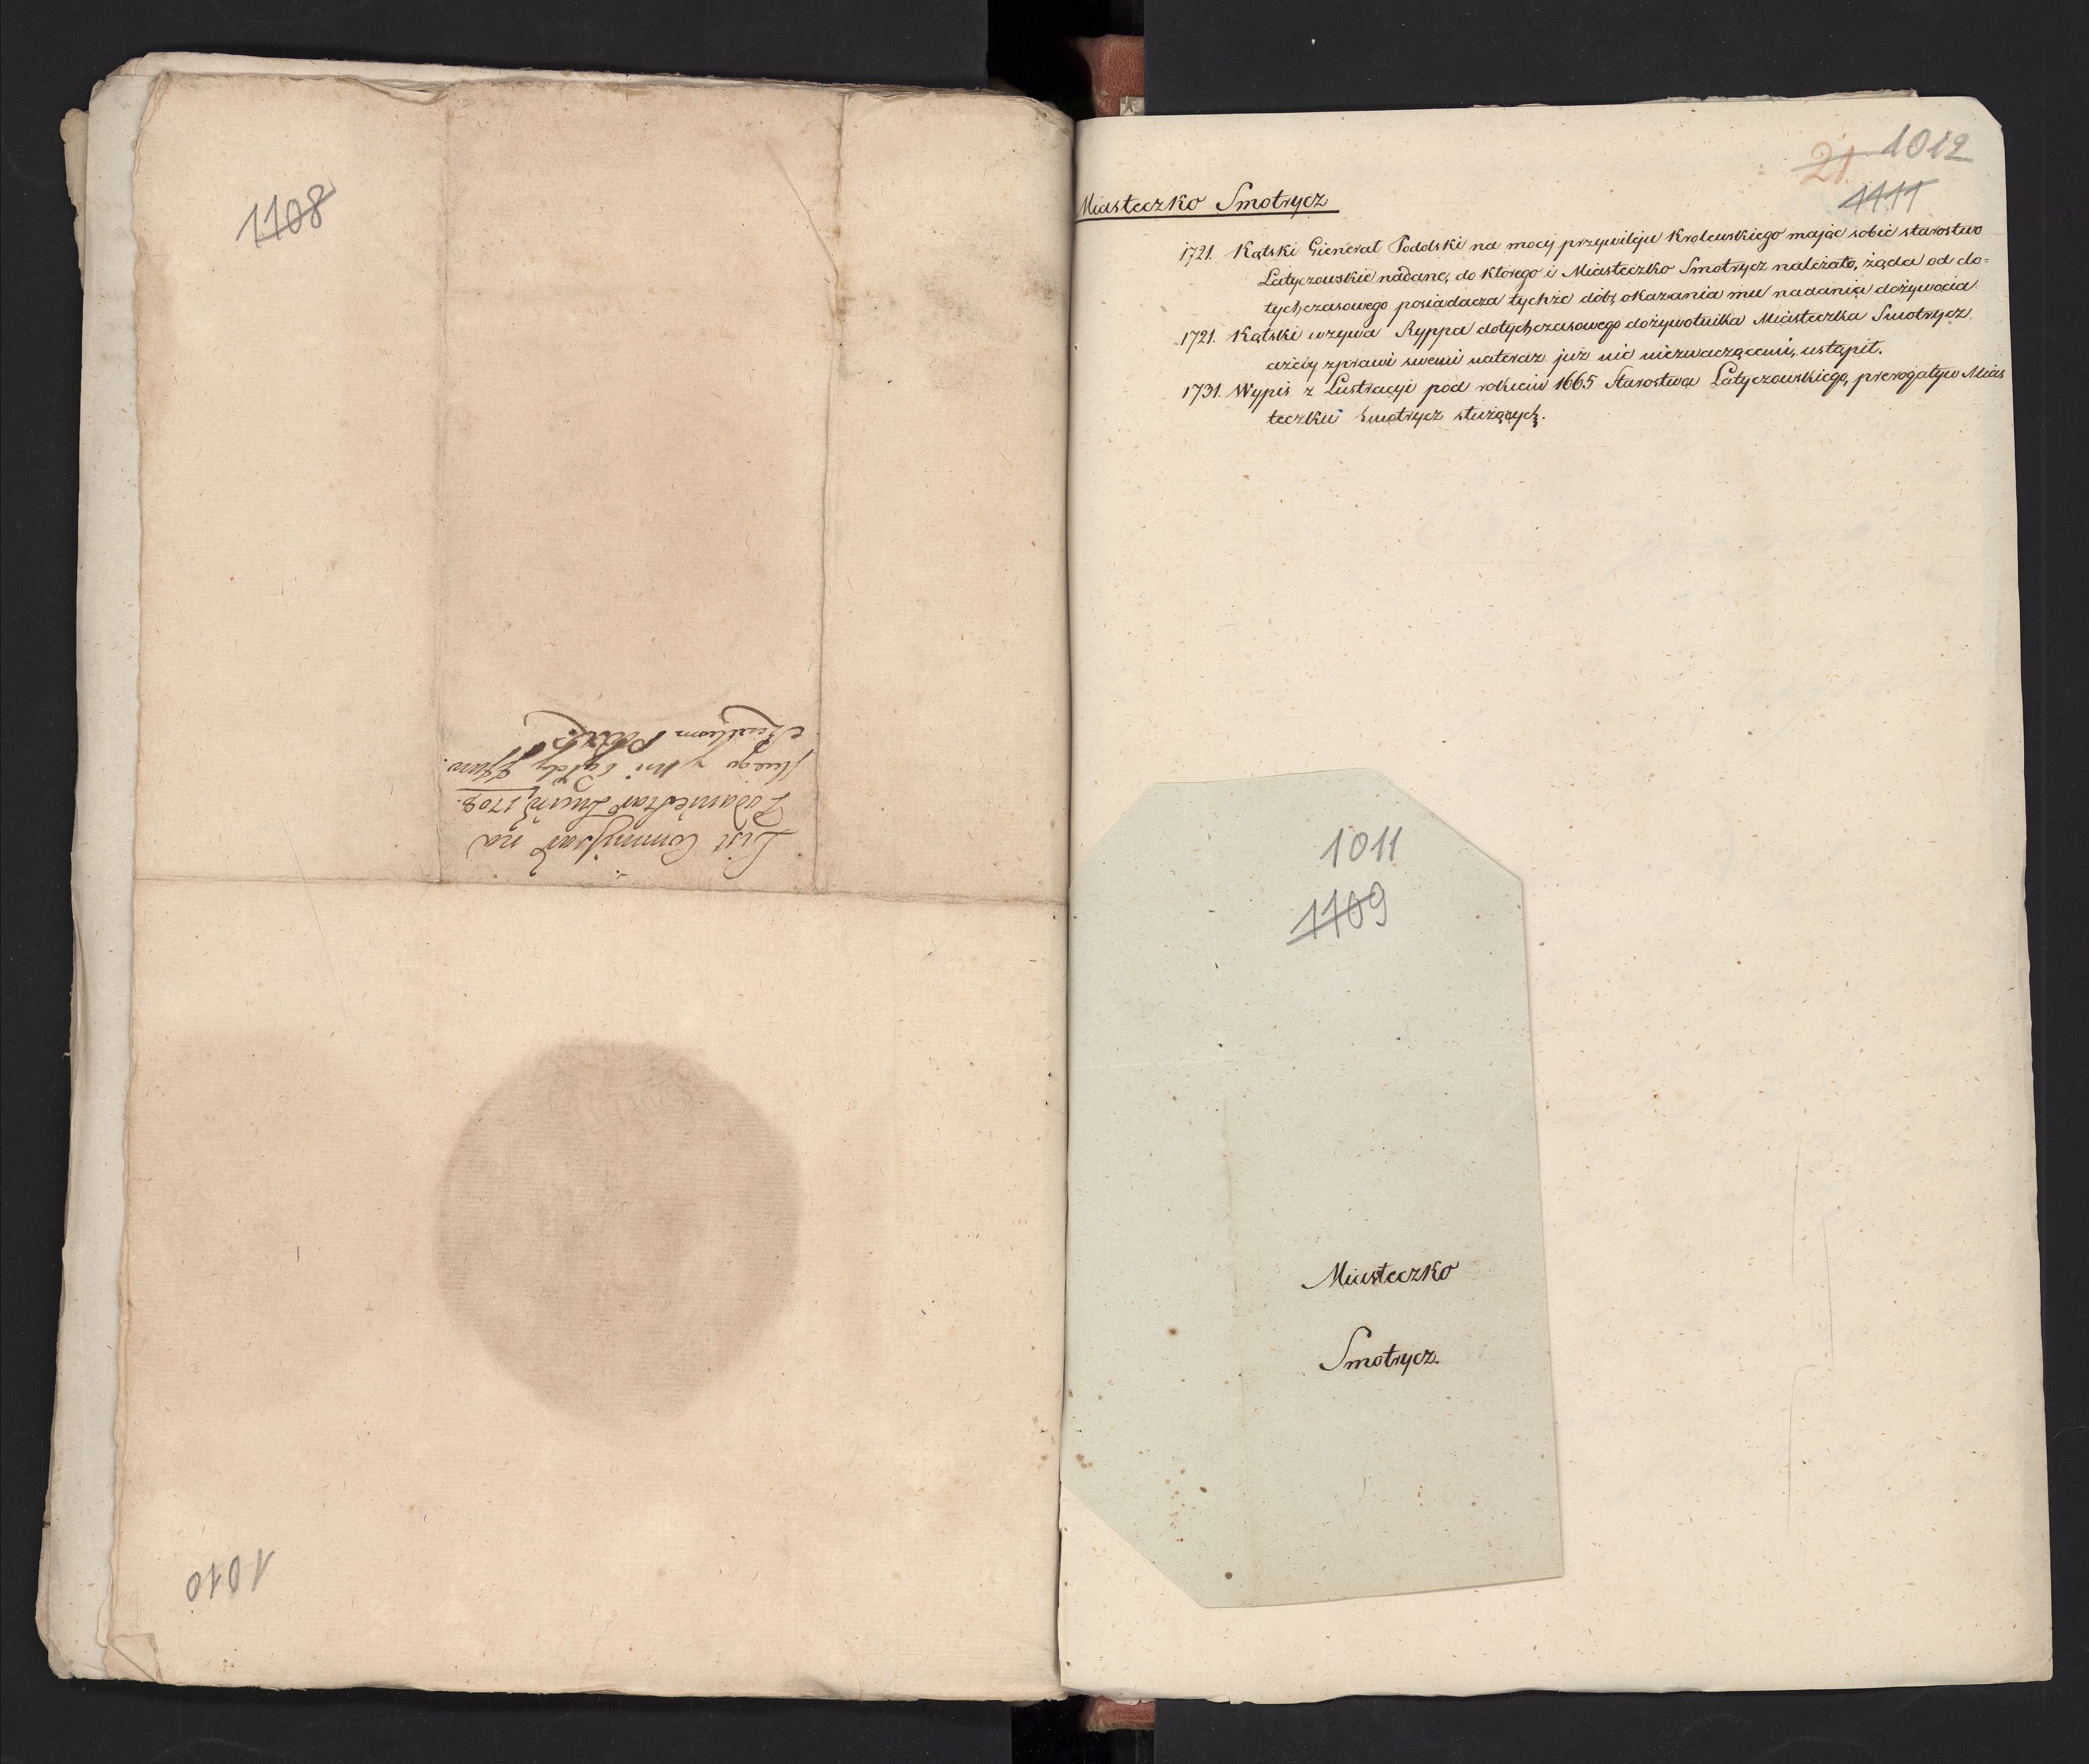 1108
List Commissar na
Zwaniec 1708
y
1010
21 1012
1111
Miasteczko Smotrycz
1721. Kątski Gienerał Podolski na mocy przywileju Krolewskiego mając sobie starostwo
Latyczowskie nadane, do którego i Miasteczko Smotrycz należało, żąda od do=
tychczasowego posiadacza tychże dóbr, okazania mu nadania dożywocia.
1721. Kątski wzywa Ryppa dotychczasowego dożywotnika Miasteczka Smotrycz,
ażeby z prawi swemi nateraz już nic nieznaczącemi, ustąpił.
1731. Wypis z Lustracyi pod rokiem 1665 Starostwa Latyczowskiego, prerogatyw Mias
teczku Smotrycz służących.
1011
1109
Miasteczko
Smotrycz.